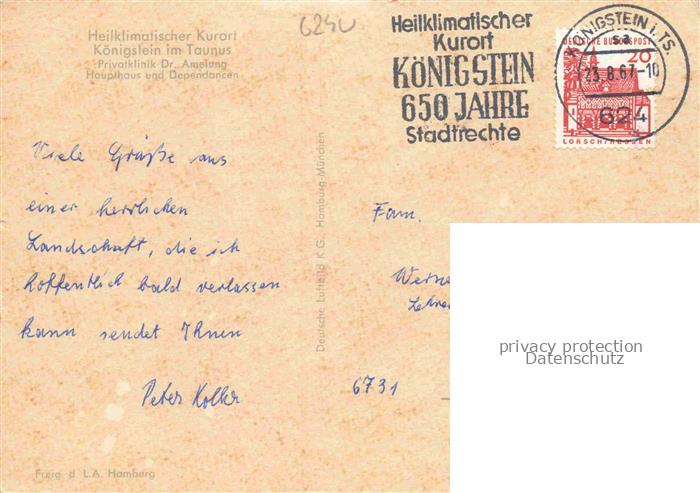 Heilklimatischer Kurort
Königstein im Taunus
Privatklinik Dr. Amelung
Haupthaus und Dependancen
6240
Heilklimatischer
Kurort
KÖNIGSTEIN
650 JAHRE
Stadtrechte
KÖNIGSTEIN i. TS.
sa
23.8.67-10
624
DEUTSCHE BUNDESPOST
20
LORSCH/HESSEN
Viele Grüße aus
einer herrlichen
Landschaft, die ich
hoffentlich bald verlassen
kann sendet Ihnen
Peter
Deutsche Luftbild K.G. Hamburg-München
Fam.
Werne
6731
privacy protection
Datenschutz
Freig. d. L.A. Hamburg